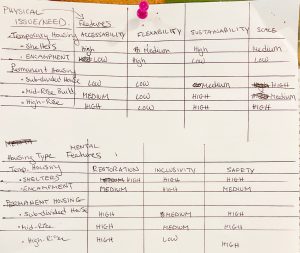 PHYSICAL Features
ISSUE/NEED. ACCESSABILITY FLEXABILITY SUSTAINABILITY SCALE
Temporary Housing
• Shelters High Medium High Medium
• ENCAMPMENT LOW High LOW LOW
Permanent Housing
• Sub-divided House LOW LOW MEDIUM HIGH
• Mid-Rise Build MEDIUM LOW HIGH MEDIUM
• High-Rise HIGH LOW HIGH HIGH
MENTAL
Housing Type Features
Temp. Housing RESTORATION INCLUSIVITY SAFETY
• SHELTERS HIGH HIGH HIGH
• ENCAMPMENT MEDIUM HIGH MEDIUM
PERMANENT HOUSING
• Sub-divided House HIGH MEDIUM HIGH
• Mid-Rise HIGH MEDIUM HIGH
• High-Rise HIGH LOW HIGH